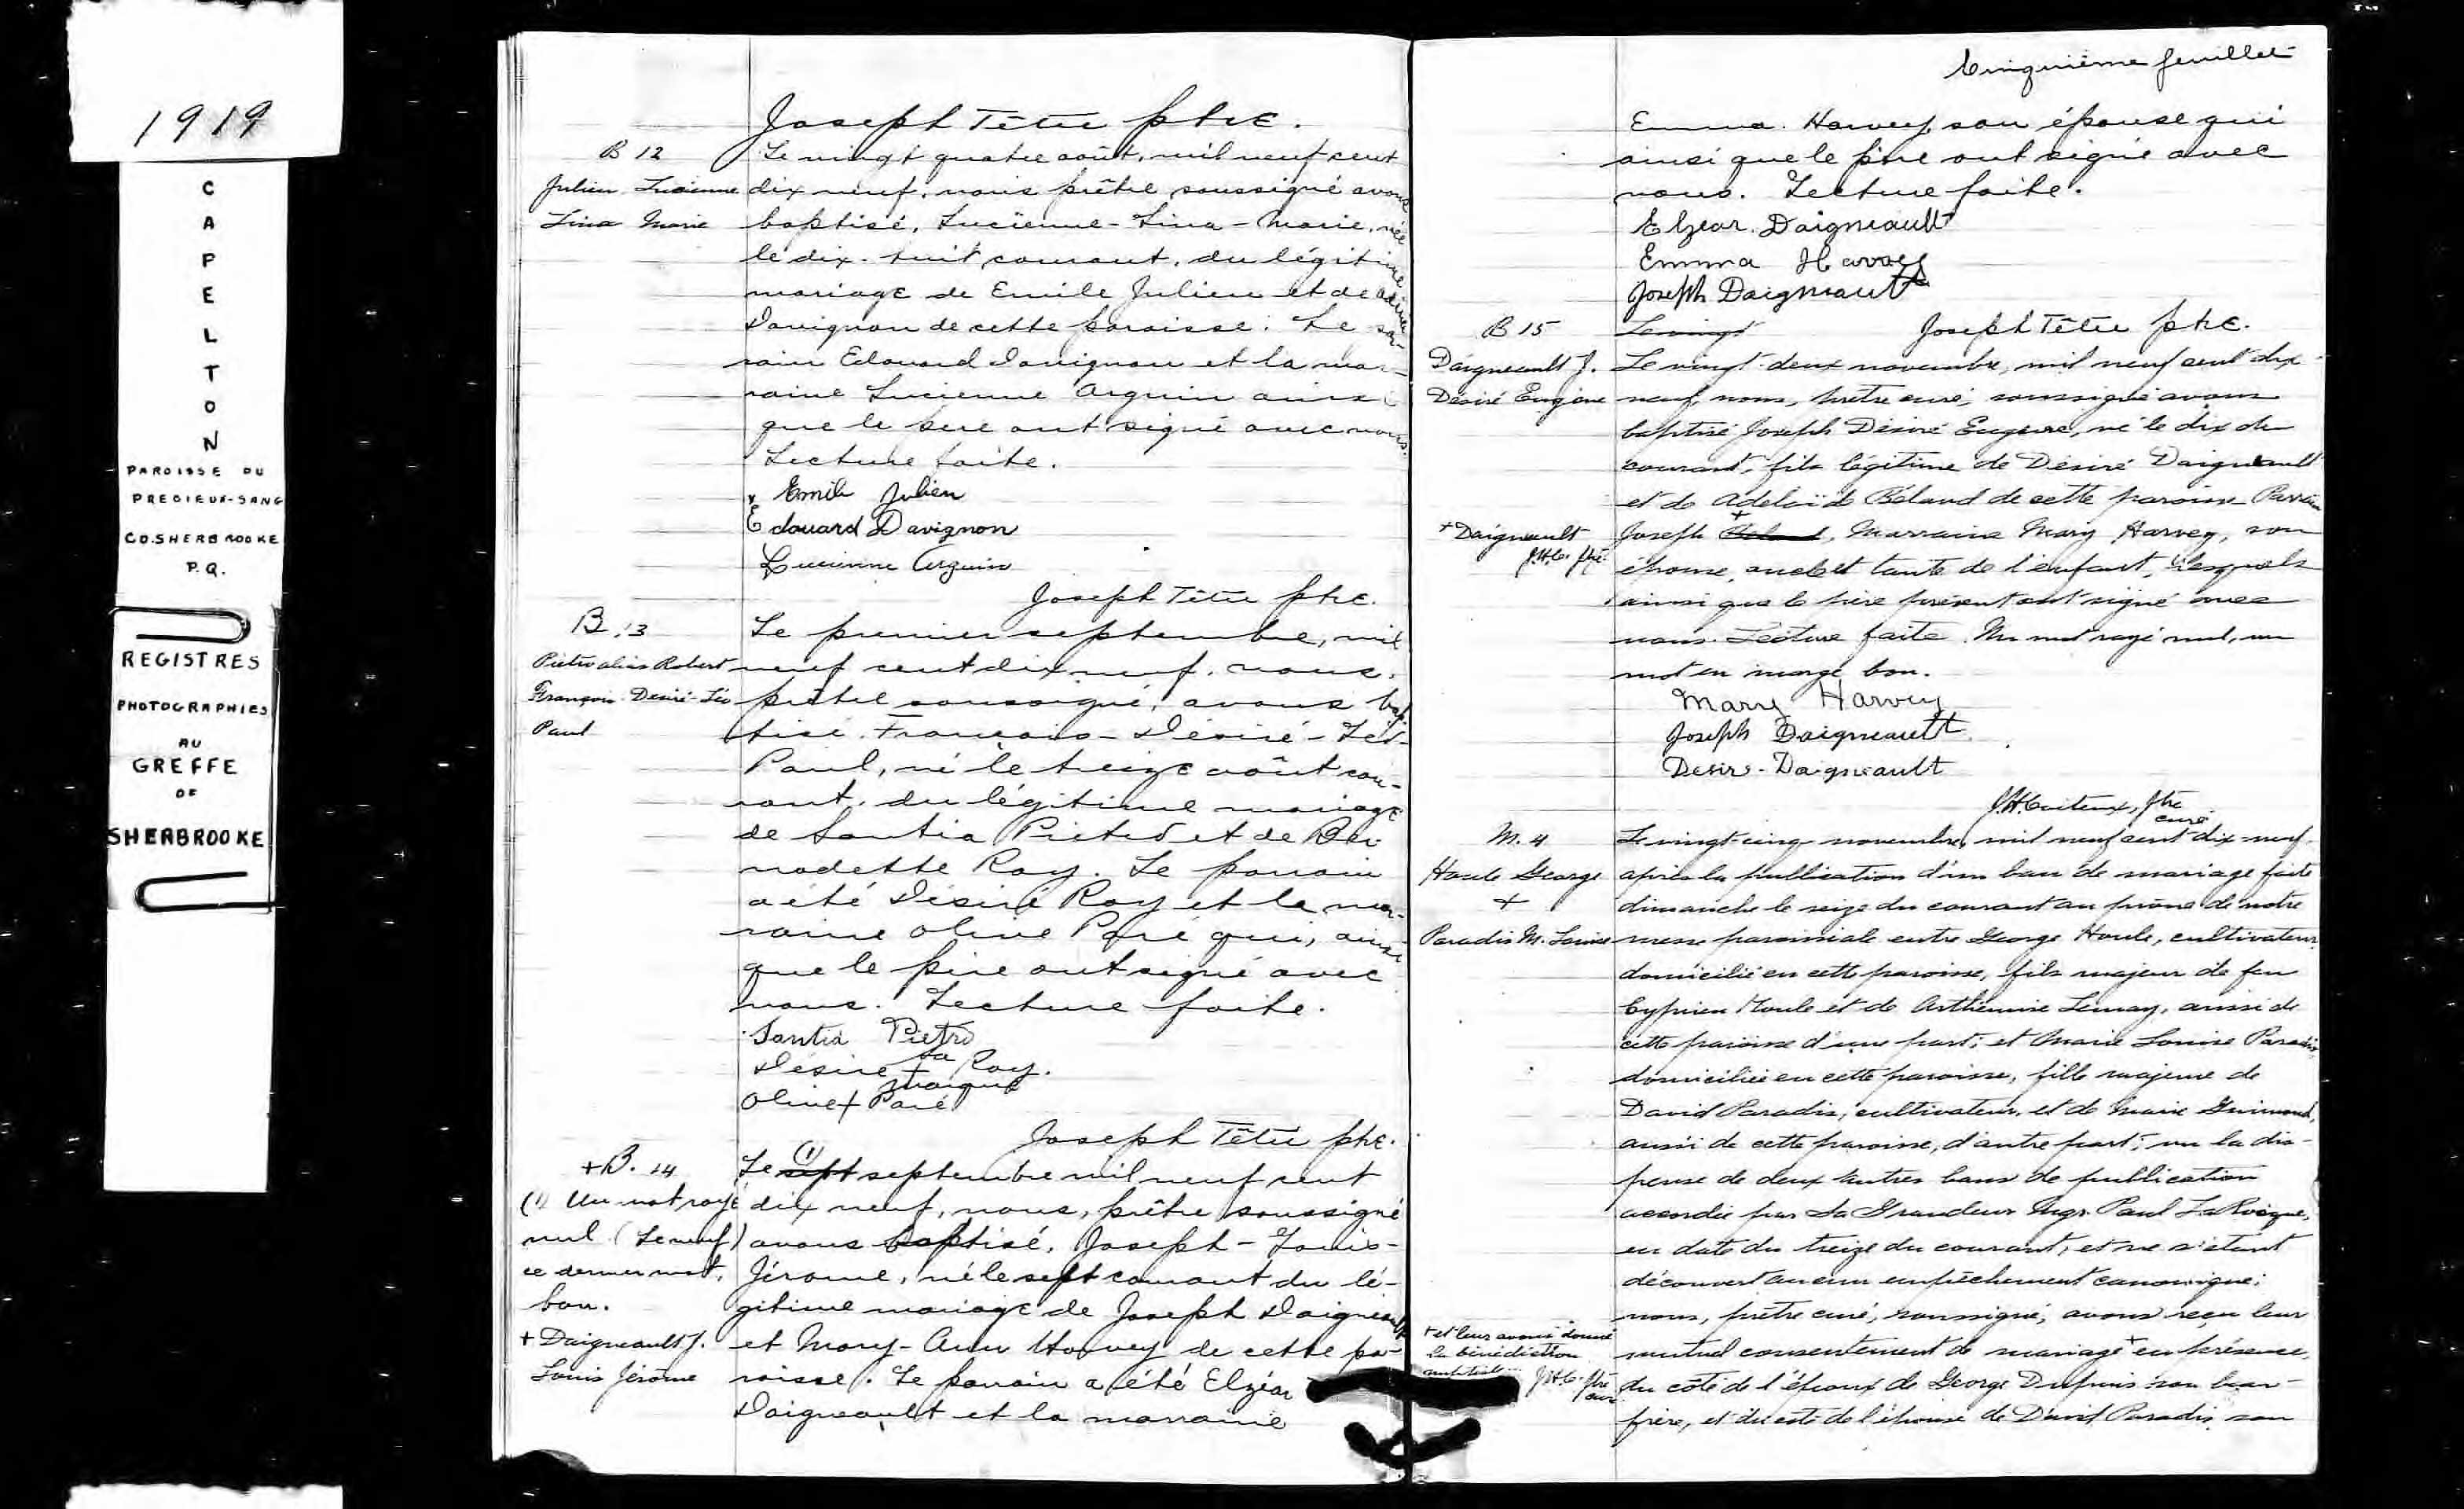 1919
C
A
P
E
L
T
O
N
PAROISSE DU
PRECIEUX-SANG
CO. SHERBROOKE
P.Q.
REGISTRES
PHOTOGRAPHIES
AU
GREFFE
DE
SHERBROOKE
Joseph Têtu ptre.
B 12
Julien Lucienne
Lina Marie
Le vingt quatre août, mil neuf cent
dix neuf, nous prêtre soussigné avons
baptisé, Lucienne-Lina-Marie, née
le dix-huit courant, du légitime
mariage de Emile Julien et de
Davignon de cette paroisse. Le par-
rain Edouard Davignon et la mar-
raine Lucienne Arguin ainsi
que le père ont signé avec nous.
Lecture faite.
Emile Julien
Edouard Davignon
Lucienne Arguin
Joseph Têtu ptre.
B. 13
Pietro alias Robert
François-Desiré-Léo
Paul
Le premier septembre, mil
neuf cent dix neuf, nous,
prêtre soussigné, avons bap-
tisé François-Désiré-Léo-
Paul, né le treize août cou-
rant, du légitime mariage
de Santia Pietro et de Ber-
nadette Roy. Le parrain
a été Désiré Roy et la mar-
raine Olive Paré qui, ainsi
que le père ont signé avec
nous. Lecture faite.
Santia Pietro
Désiré + Roy.
sa
marque
Olive + Paré
Joseph Têtu ptre.
+B. 14
(1) Un mot rayé
nul (Le neuf)
ce dernier mot,
bon.
+ Daigneault J.
Louis Jérôme
Le sept (1) septembre mil neuf cent
dix neuf, nous, prêtre soussigné
avons baptisé, Joseph-Louis-
Jérome, né le sept courant du lé-
gitime mariage de Joseph Daigneault
et Mary-Ann Harvey de cette pa-
roisse. Le parrain a été Elzéar
Daigneault et la marraine
Cinquième feuillet
Emma Harvey, son épouse qui
ainsi que le père ont signé avec
nous. Lecture faite.
Elzear Daigneault
Emma Harvey
Joseph Daigneault
Le vingt Joseph Têtu ptre.
B 15
Daigneault J.
Désiré Eugène
+ Daigneault
J.H.C. ptre
Le vingt-deux novembre, mil neuf cent dix-
neuf, nous, prêtre curé, soussigné avons
baptisé Joseph Désiré Eugène, né le dix du
courant, fils légitime de Désiré Daigneault
et de Adelaïde Béland de cette paroisse. Parrain
Joseph + Béland, Marraine Mary Harvey, son
épouse, oncle et tante de l'enfant, lesquels
ainsi que le père présent ont signé avec
nous. Lecture faite. Un mot rayé nul, un
mot en marge bon.
Mary Harvey
Joseph Daigneault
Desire-Daigneault
ptre
curé
M. 4
Houle George
+
Paradis M. Louise
Le vingt-cinq novembre, mil neuf cent dix-neuf,
après la publication d'un ban de mariage faite
dimanche le seize du courant au prône de notre
messe paroissiale entre George Houle, cultivateur,
domicilié en cette paroisse, fils majeur de feu
Cyprien Houle et de Arthémise Lemay, aussi de
cette paroisse d'une part; et Marie Louise Paradis
domiciliée en cette paroisse, fille majeure de
David Paradis, cultivateur, et de Marie Guimond,
aussi de cette paroisse, d'autre part; vu la dis-
pense de deux autres bans de publication
accordée par Sa Grandeur Mgr. Paul LaRocque,
en date du treize du courant, et ne s'étant
découvert aucun empêchement canonique:
nous, prêtre curé, soussigné, avons reçu leur
mutuel consentement de mariage + en présence,
du côté de l'époux de George Dupuis son beau-
frère, et du côté de l'épouse de David Paradis son
+ et leur avons donné
la bénédiction
nuptiale. J.H.C. ptre
curé